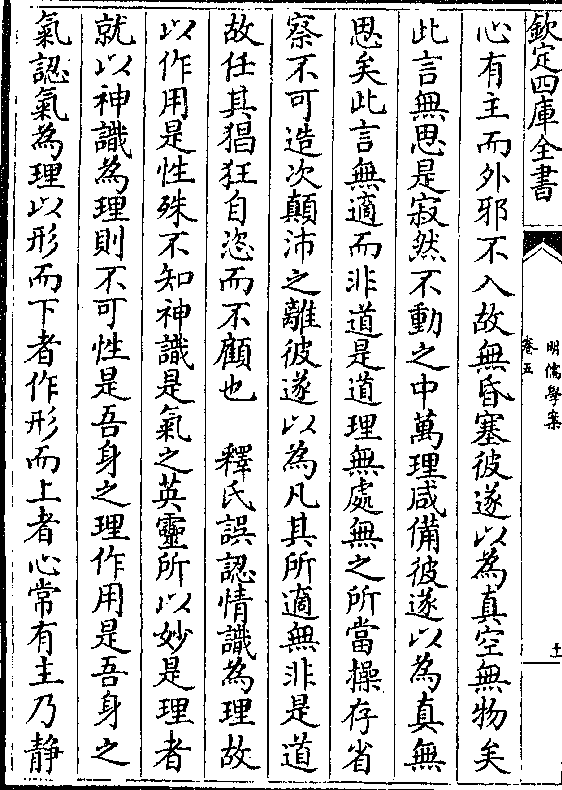 欽定四庫全書
明儒學案
卷五
心有主而外邪不入故無昏塞彼遂以為真空無物矣
此言無思是寂然不動之中萬理咸備彼遂以為真無
思矣此言無適而非道是道理無處無之所當操存省
察不可造次顛沛之離彼遂以為凡其所適無非是道
故任其猖狂自恣而不顧也　釋氏誤認情識為理故
以作用是性殊不知神識是氣之英靈所以妙是理者
就以神識為理則不可性是吾身之理作用是吾身之
氣認氣為理以形而下者作形而上者心常有主乃静